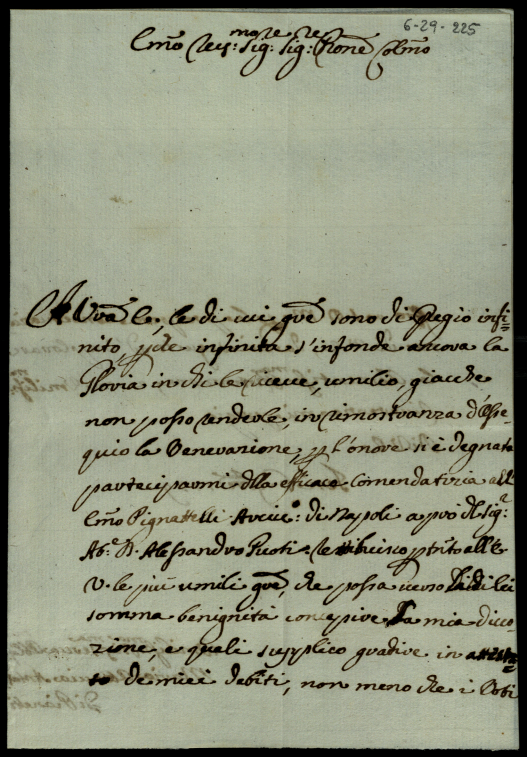 6-29-225
Emo Reu:mo Sig:re Sig:re Pnõe Colmo
A Vra Em:, le di cui gre sono di Pregio infi=
nito, p che infinita s'infonde ancora la
Gloria in chi le riceve, umilio, giacche
non posso renderle, in rimostranza d'Osse=
quio la Venerazione, p l'onore si è degnata
parteciparmi dlla efficace comendatizia all'
Emo Pignattelli Arciv:o di Napoli a pro dl Sig:r
Ab:e D. Alessandro
V. le più umili gre, che possa verso di lei
somma benignità concepire la mia divo
zione, e quali supplico gradire in
to de miei debiti, non meno che i Voti